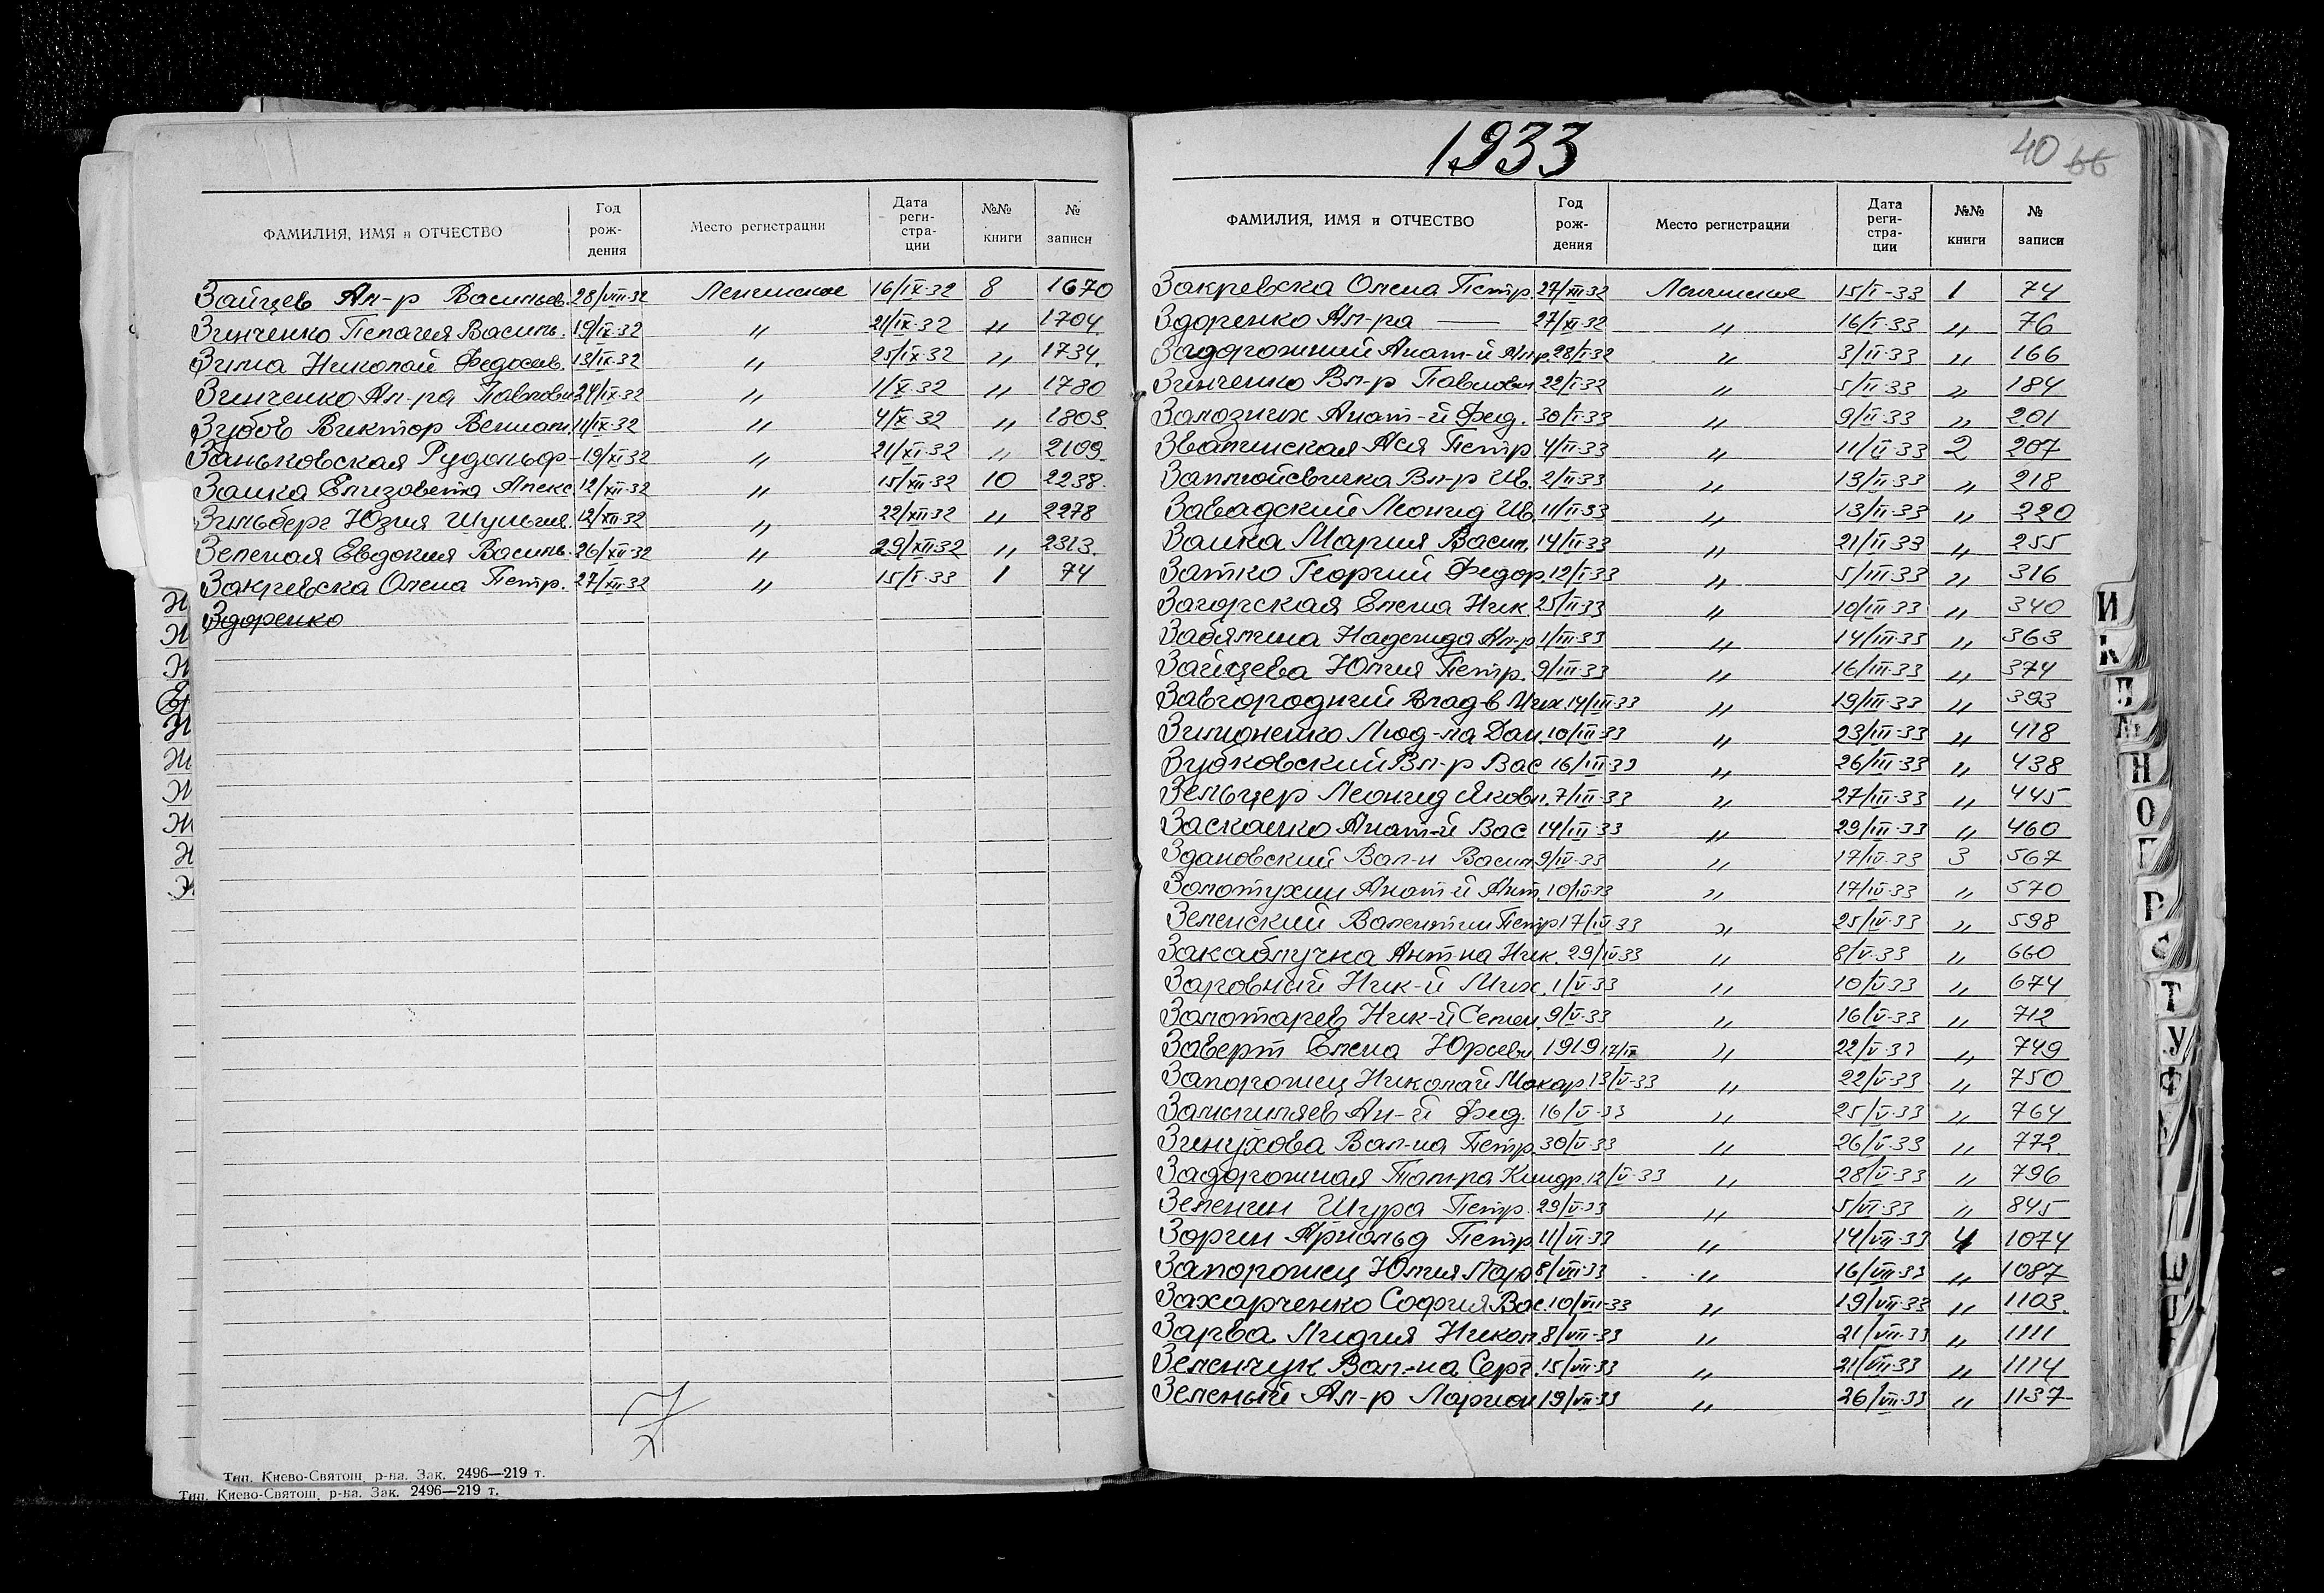 ФАМИЛИЯ, ИМЯ и ОТЧЕСТВО Год рождения Место регистрации Дата регистрации №№ книги № записи
Зайцев Ал-р Васильев. 28/VIII-32 Ленинское 16/IX-32 8 1670
Зинченко Пелагия Василь. 19/IX-32 " 21/IX-32 " 1704
Зима Николай Федосов. 13/IX-32 " 25/IX-32 " 1734.
Зинченко Ал-ра Павловн 24/IX-32 " 1/X-32 " 1780
Зубов Виктор 11/IX-32 " 4/X-32 " 1803
Заньковская Рудольф- 19/XI-32 " 21/XI-32 " 2109
Заика Елизовета Алекс 12/XII-32 " 15/XII-32 10 2238.
Зильберг Юзия Шульгия. 12/XII-32 " 22/XII-32 " 2278
Зеленая Евдокия Василь. 26/XII-32 " 29/XII-32 " 2313.
Закревска Олена Петр. 27/XII-32 " 15/I-33 1 74
Здоренко
Тип. Киево-Святош. р-на. Зак. 2496—219 т.
Тип. Киево-Святош. р-на. Зак. 2496—219 т.
1933
40 66
ФАМИЛИЯ, ИМЯ и ОТЧЕСТВО Год рождения Место регистрации Дата регистрации №№ книги № записи
Закревска Олена Петр. 27/XII-32 Ленинское 15/I-33 1 74
Здоренко Ал-ра — 27/XI-32 " 16/I-33 " 76
Задорожний Анат-й Ал-р. 28/I-32 " 3/II-33 " 166
Зинченко Вл-р Павлович 22/I-32 " 5/II-33 " 184
Залозних Анат-й Фед. 30/I-33 " 9/II-33 " 201
Звалинская Ася Петр. 4/II-33 " 11/II-33 2 207
Заплюйсвичка Вл-р Ив. 2/II-33 " 13/II-33 " 218
Завадский Леонид Ив. 11/II-33 " 13/II-33 " 220
Заика Мария Васил. 14/II-33 " 21/II-33 " 255
Затко Георгий Федор. 12/I-33 " 5/III-33 " 316
Загорская Елена Ник. 25/II-33 " 10/III-33 " 340
Забялина Надежда Ал-р 1/III-33 " 14/III-33 " 363
Зайцева Юлия Петр. 9/III-33 " 16/III-33 " 374
Завгородний Влад-в Мих. 14/III-33 " 19/III-33 " 393
Зимоненко Люд-ла Дан. 10/III-33 " 23/III-33 " 418
Зубковский Вл-р Вас 16/III-33 " 26/III-33 " 438
Зельцер Леонид Яковл. 7/III-33 " 27/III-33 " 445
Заскалко Анат-й Вас 14/III-33 " 29/III-33 " 460
Здановский Вал-н Васил 9/IV-33 " 17/IV-33 3 567
Золотухин Анат-й Ант. 10/IV-33 " 17/IV-33 " 570
Зеленский Валентин Петр 17/IV-33 " 25/IV-33 " 598
Закаблучна Ант-на Ник. 29/IV-33 " 8/V-33 " 660
Заровный Ник-й Мих. 1/V-33 " 10/V-33 " 674
Золотарев Ник-й Семен. 9/V-33 " 16/V-33 " 712
Заверт Елена Юрьевн 1919 17/IX " 22/V-33 " 749
Запорожец Николай Макар 13/V-33 " 22/V-33 " 750
Замыиляев Ал-й Фед. 16/V-33 " 25/V-33 " 764
Зинухова Вал-на Петр. 30/V-33 " 26/V-33 " 772.
Задорожная Там-ра Киндр. 12/V-33 " 28/V-33 " 796
Зеленин Шура Петр. 29/V-33 " 5/VI-33 " 845
Зорин Арнольд Петр. 11/VI-33 " 14/VII-33 4 1074
Запорожец Юлия Лар 8/VII-33 " 16/VII-33 " 1087
Захарченко София Вас. 10/VII-33 " 19/VII-33 " 1103.
Зарва Лидия Никол. 8/VII-33 " 21/VII-33 " 1111
Зеленчук Вал-на Серг. 15/VII-33 " 21/VII-33 " 1114
Зеленый Ал-р Ларион 19/VII-33 " 26/VII-33 " 1137
И
К
Л
М
Н
О
П
Р
С
Т
У
Ф
Ш